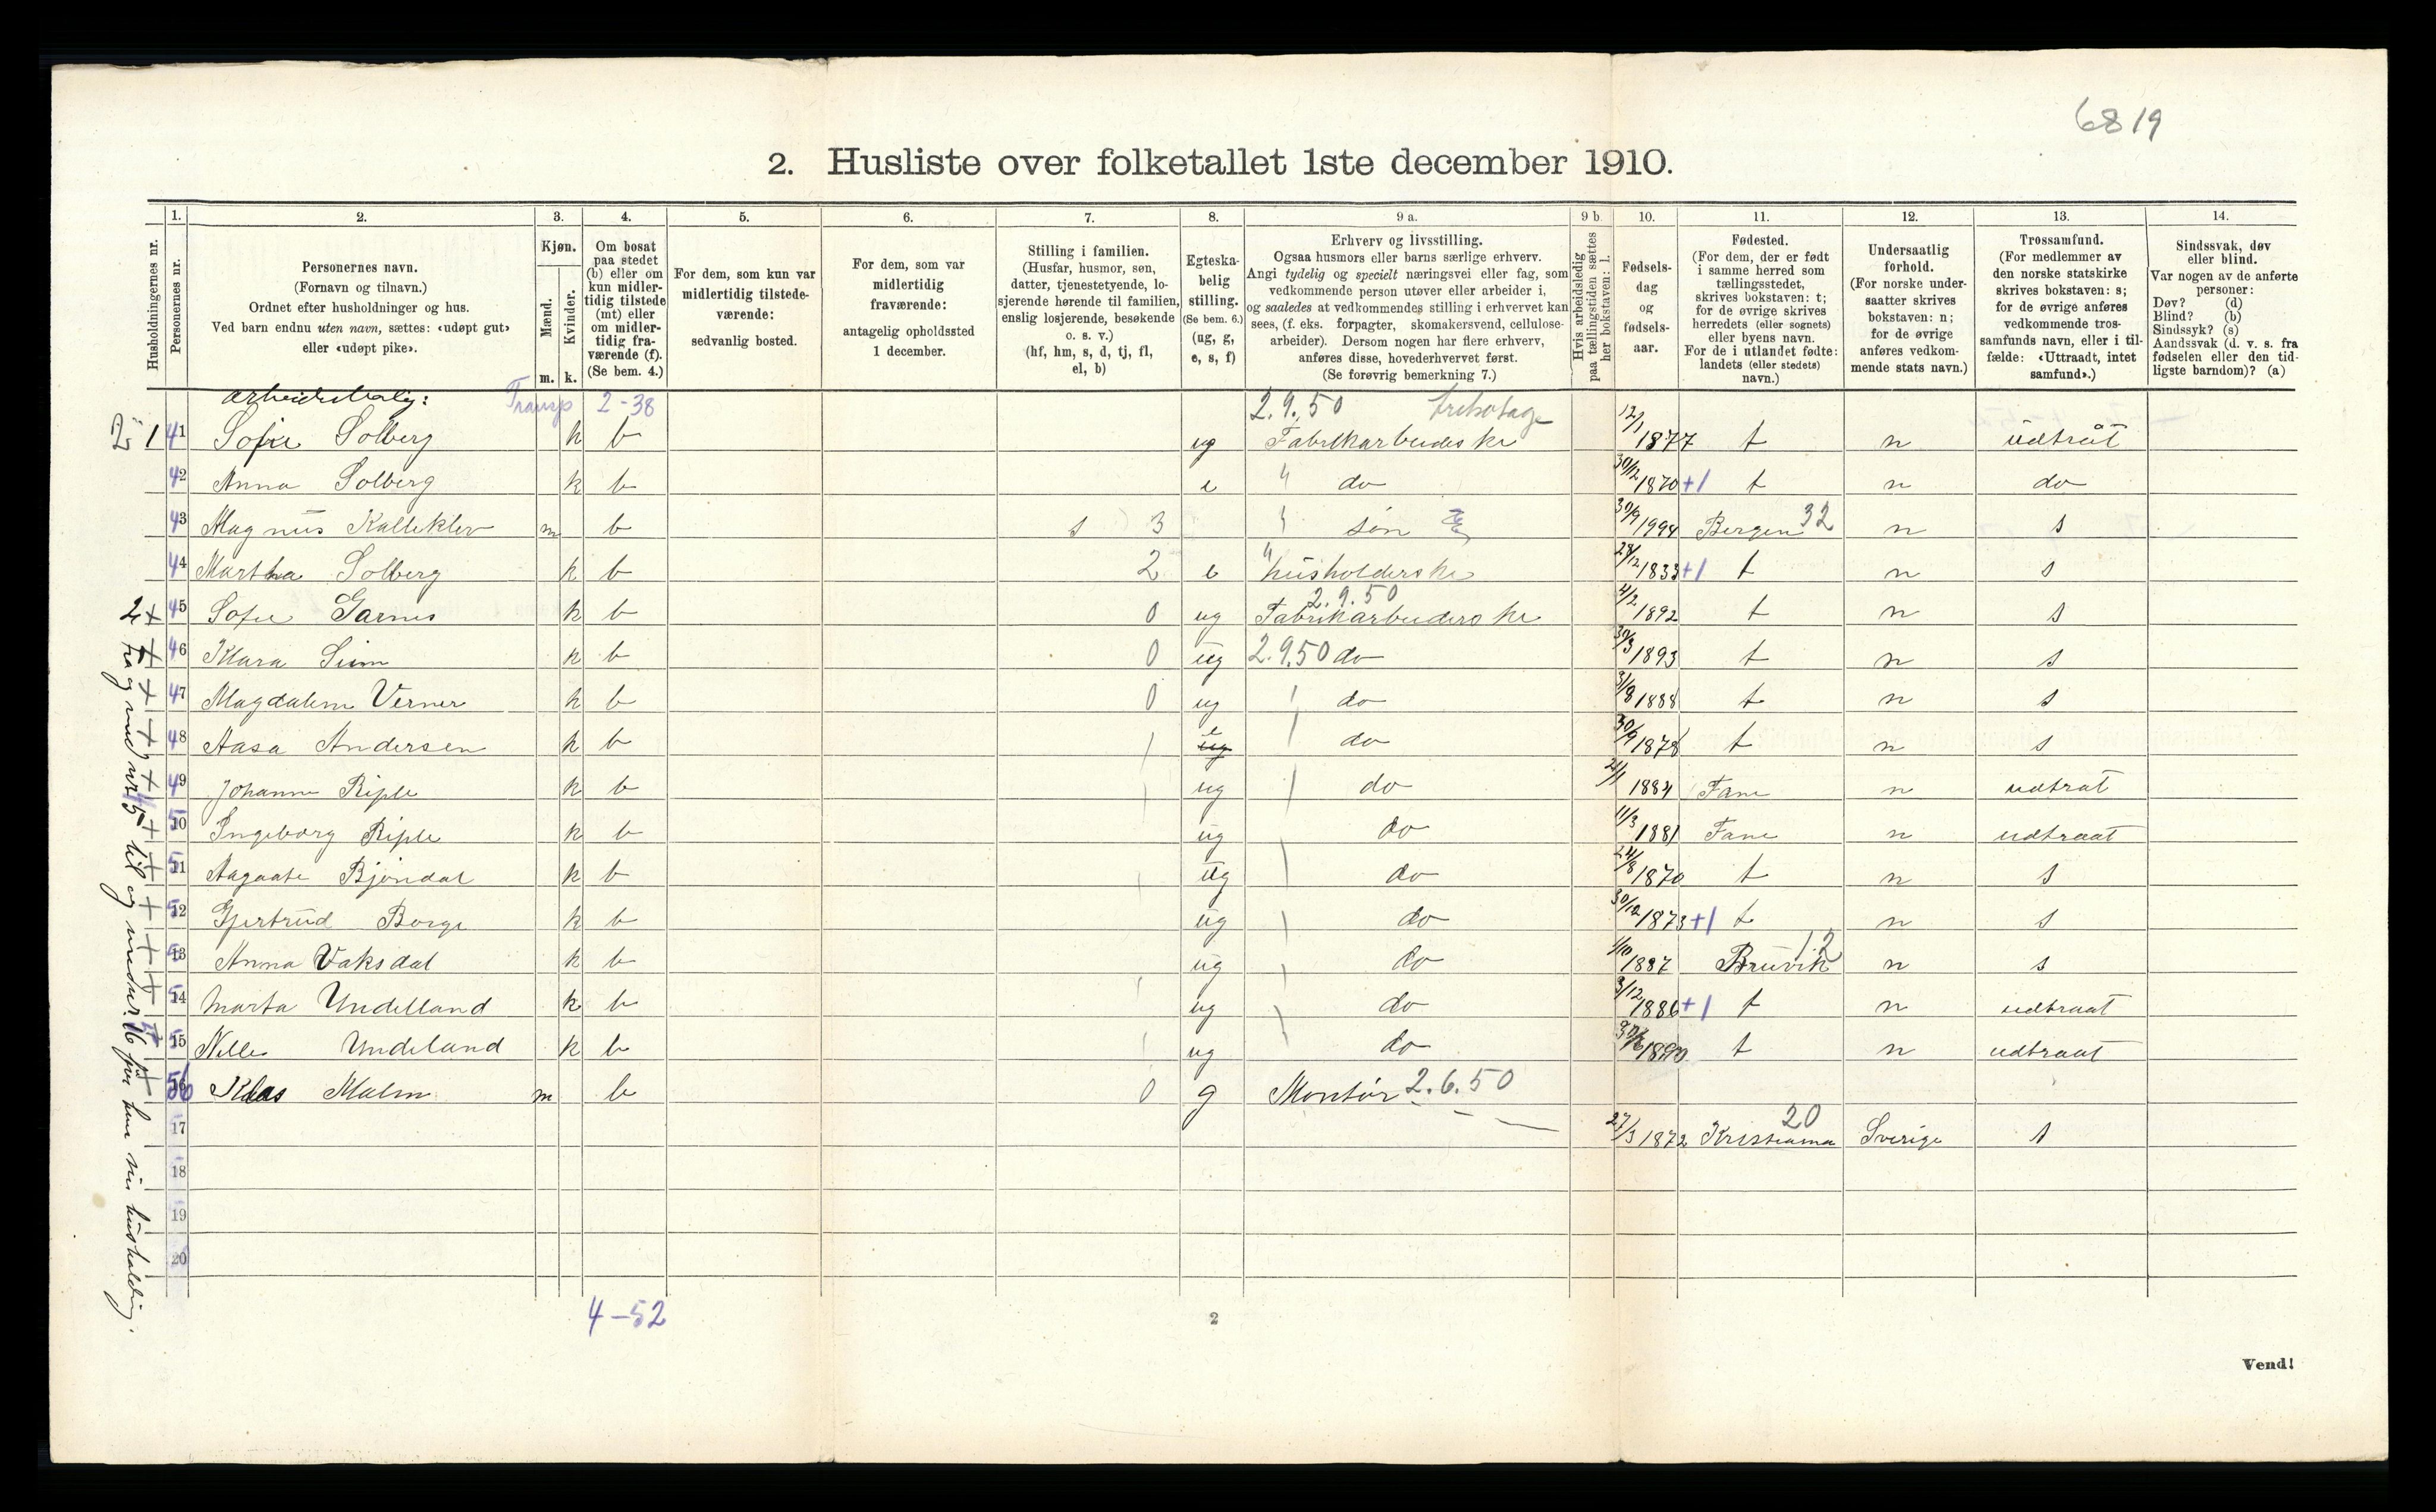 6819
2. Husliste over folketallet 1ste december 1910.
Husholdningernes nr.
1. Personernes nr.
2. Personernes navn.
(Fornavn og tilnavn.)
Ordnet efter husholdninger og hus.
Ved barn endnu uten navn, sættes: «udøpt gut»
eller «udøpt pike».
3. Kjøn.
Mænd. m.
Kvinder. k.
4. Om bosat
paa stedet
(b) eller om
kun midler-
tidig tilstede
(mt) eller
om midler-
tidig fra-
værende (f).
(Se bem. 4.)
5. For dem, som kun var
midlertidig tilstede-
værende:
sedvanlig bosted.
6. For dem, som var
midlertidig
fraværende:
antagelig opholdssted
1 december.
7. Stilling i familien.
(Husfar, husmor, søn,
datter, tjenestetyende, lo-
sjerende hørende til familien,
enslig losjerende, besøkende
o. s. v.)
(hf, hm, s, d, tj, fl,
el, b)
8. Egteska-
belig
stilling.
(Se bem. 6.)
(ug, g,
e, s, f)
9 a. Erhverv og livsstilling.
Ogsaa husmors eller barns særlige erhverv.
Angi tydelig og specielt næringsvei eller fag, som
vedkommende person utøver eller arbeider i,
og saaledes at vedkommendes stilling i erhvervet kan
sees, (f. eks. forpagter, skomakersvend, cellulose-
arbeider). Dersom nogen har flere erhverv,
anføres disse, hovederhvervet først.
(Se forøvrig bemerkning 7.)
9 b. Hvis arbeidsledig
paa tællingstiden sættes
her bokstaven: l.
10. Fødsels-
dag
og
fødsels-
aar.
11. Fødested.
(For dem, der er født
i samme herred som
tællingsstedet,
skrives bokstaven: t;
for de øvrige skrives
herredets (eller sognets)
eller byens navn.
For de i utlandet fødte:
landets (eller stedets)
navn.)
12. Undersaatlig
forhold.
(For norske under-
saatter skrives
bokstaven: n;
for de øvrige
anføres vedkom-
mende stats navn.)
13. Trossamfund.
(For medlemmer av
den norske statskirke
skrives bokstaven: s;
for de øvrige anføres
vedkommende tros-
samfunds navn, eller i til-
fælde: «Uttraadt, intet
samfund».)
14. Sindssvak, døv
eller blind.
Var nogen av de anførte
personer:
Døv? (d)
Blind? (b)
Sindssyk? (s)
Aandssvak (d. v. s. fra
fødselen eller den tid-
ligste barndom)? (a)
Arbeiderbolig: Transp 2-38 2.9.50 trikotage
1 41 Sofie Solberg k b ug Fabrikarbeiderske 12/1 1877 t n üdtråt
42 Anna Solberg k b e " do 30/12 1870 +1 t n do
43 Magnus Kalleklev m b s 3 søn 30/9 1994 Bergen 32 n s
44 Martha Solberg k b 2 e husholderske 24/12 1833 +1 t n s
2.9.50
2 + 45 Sofie Garnes k b 0 ug Fabrikarbeiderske 4/2 1892 t n s
+ 46 Klara Siim k b 0 ug 2.9.50 do 30/3 1893 t n s
+ 47 Magdalene Verner k b 0 ug do 31/8 1888 t n s
+ 48 Aasa Andersen k b ug e do 30/9 1878 t n s
+ 49 Johanne Riple k b ug do 1884 Fane n udtrat
+ 50 Ingeborg Riple k b ug do 11/3 1881 Fane n udtraat
+ 51 Aagaate Bjøndal k b ug do 24/8 1870 t n s
+ 52 Gjertrud Borge k b ug do 30/12 1873 +1 t n s
+ 53 Anna Vaksdal k b ug do 1/10 1887 Bruvik 12 n s
+ 54 Marta Undelland k b ug do 3/12 1886 +1 t n udtraat
+ 55 Nelle Undeland k b ug do 1890 t n udtraat
+ 56 Klas Malm m b 0 g Montør 2.6.50
17 27/3 1872 Kristiania 20 Sverige s
18
19
20
fra og med nr 5 til og med nr. 16 hver hun sin husholdning.
4-52
2
Vend!